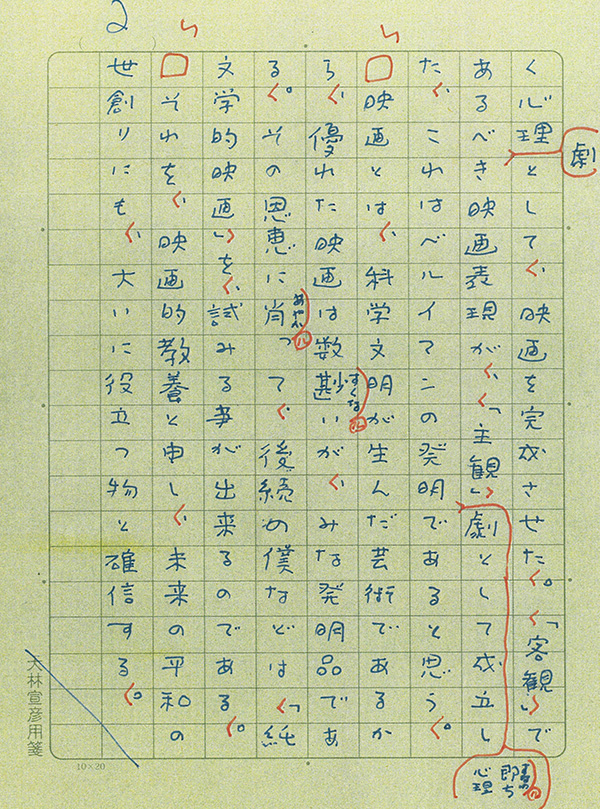 2
く心理として、映画を完成させた。「客観」で
劇
あるべき映画表現が、「主観」劇として成立し
即ち心理
た、これはベルイマンの発明であると思う。
映画とは、科学文明が生んだ芸術であるか
ら、優れた映画は数尠いが、みな発明品であ
すくな
る。その恩恵に肖って、後続の僕などは、「純
あやか
文学的映画」を、試みる事が出来るのである。
それを、映画的教養と申し、未来の平和の
世創りにも、大いに役立つ物と確信する。
大林宣彦用箋
10×20